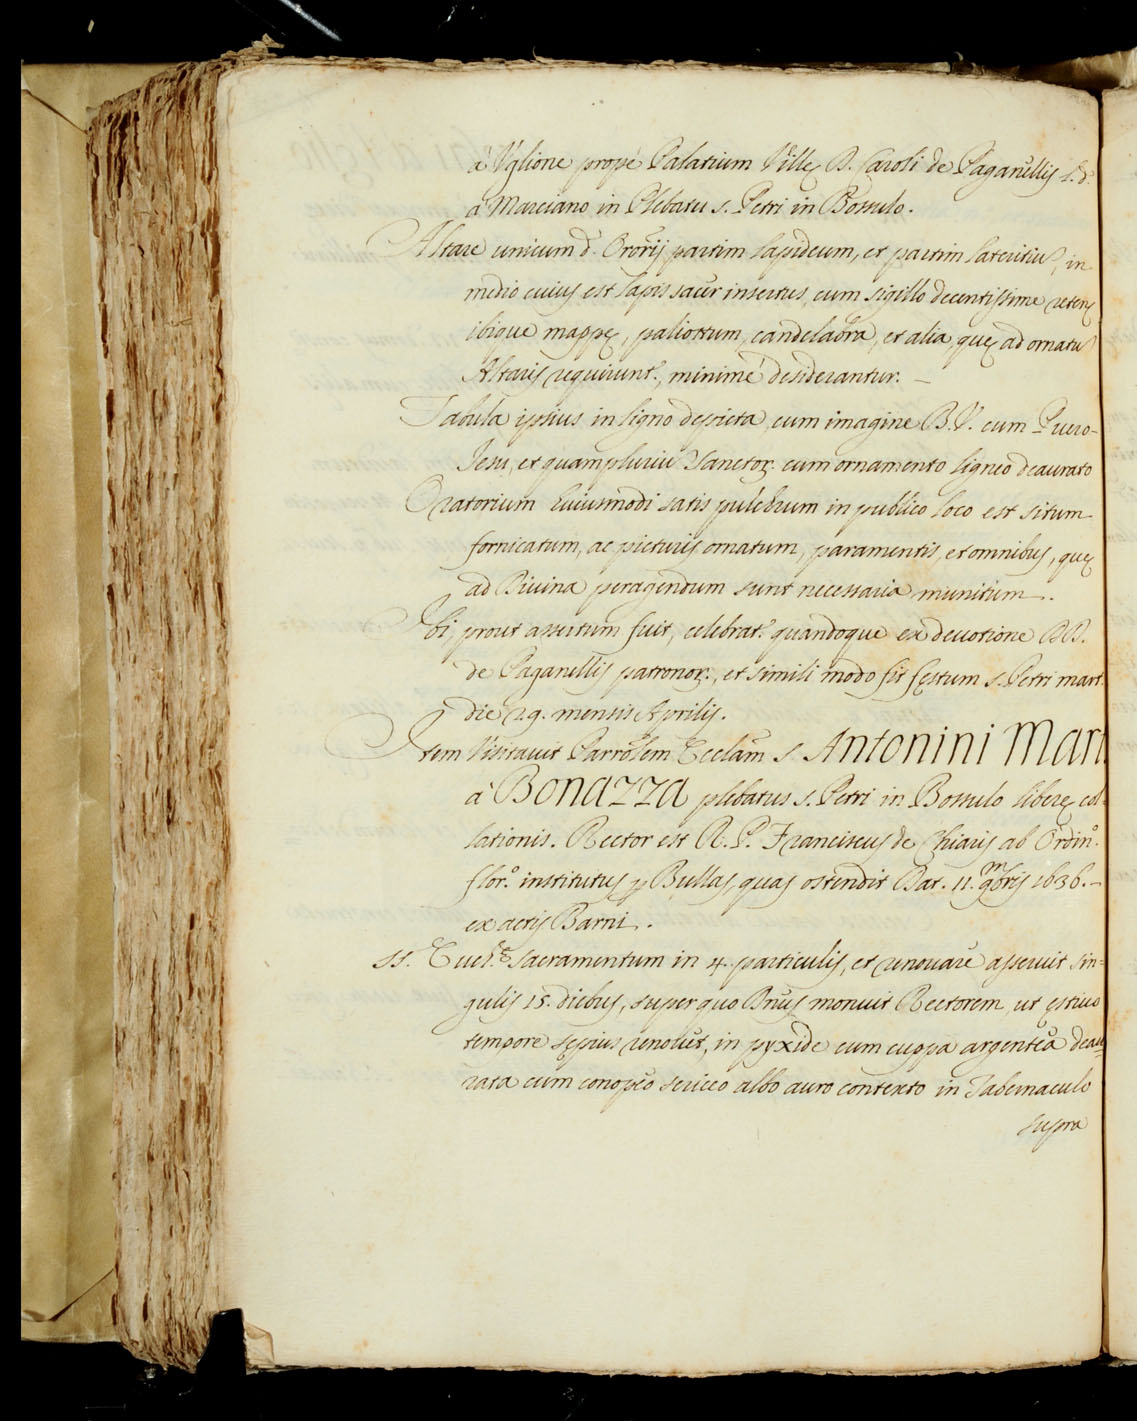 à Uglione propè Palatium Villę D. Caroli de Paganellis l.d.
à Marciano in Plebatu s. Petri in Bossulo.
Altare unicum d. Ororij partim lapideum, et partim lateritiū, in
medio cuius est lapis sacer insertus, cum sigillo decentissime retenꝰ
ibique mappę, paliottum, candelabra, et alia, quę ad ornatū
Altaris requirunt., minimè desiderantur. –
Tabula ipsius in ligno depicta, cum imagine B.V. cum Puero
Jesu, et quampluriū Sanctoꝝ. cum ornamento ligneo deaurato
Oratorium huiusmodi satis pulchrum in publico loco est situm
fornicatum, ac picturis ornatum, paramentis, et omnibus, quę
ad Diuina peragendum sunt necessaria munitum.
Ibi, prout assertum fuit, celebrat.r quandoque ex deuotione DD.
de Paganellis patronoꝝ., et simili modo fit festum s. Petri mart.
die 29. mensis Aprilis.
Item Visitauit Parrōlem Ecclām S. Antonini Mart.
à Bonazza plebatus s. Petri in Bossulo liberę col-
lationis. Rector est R. P. Franciscus de Chiaris ab Ordin.o
flor.o institutus ꝑ Bullas, quas ostendit Dat. 11. m 9bris 1636. –
ex actis Barni.
SS. Euch.ę Sacramentum in 4. particulis, et renouare asseruit sin-
gulis 15. diebus, super quo Dnūs monuit Rectorem, ut ęstiuo
tempore sępius renouet, in pyxide cum cuppa argentea deau-
rata cum conopęo sericeo albo auro contexto in Tabernaculo
supra